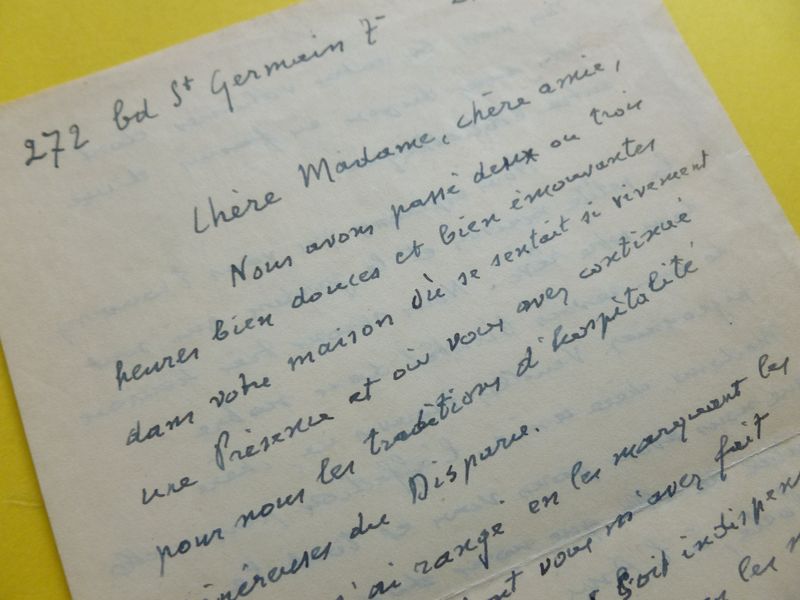 272 bd St Germain 7e
Chère Madame, chère amie,
Nous avons passé deux ou trois
heures bien douces et bien émouvantes
dans votre maison où se sentait si vivement
une Présence et où vous avez continué
pour nous les traditions d'hospitalité
généreuses du Disparu.
j'ai rangé en les marquant les
dont vous m'avez fait
soit indispen
les